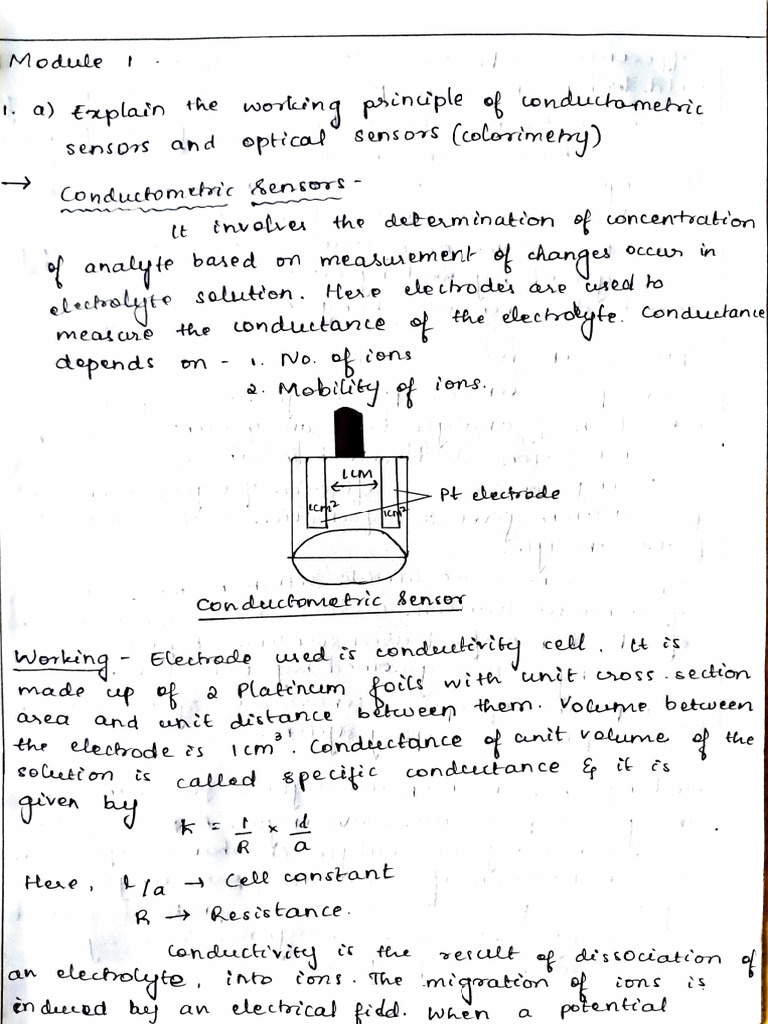 Module 1.
1. a) Explain the working principle of conductometric
sensors and optical sensors (colorimetry)
→ Conductometric Sensors -
It involves the determination of concentration
of analyte based on measurement of changes occur in
electrolyte solution. Here electrodes are used to
measure the conductance of the electrolyte. Conductance
depends on - 1. No. of ions
2. Mobility of ions.
1cm
1cm²
1cm²
Pt electrode
Conductometric Sensor
Working - Electrode used is conductivity cell. It is
made up of 2 Platinum foils with unit cross-section
area and unit distance between them. Volume between
the electrode is 1cm³. Conductance of unit volume of the
solution is called specific conductance & it is
given by
k = 1/R × d/a
Here, l/a → Cell constant
R → Resistance.
Conductivity is the result of dissociation of
an electrolyte, into ions. The migration of ions is
induced by an electrical field. When a potential